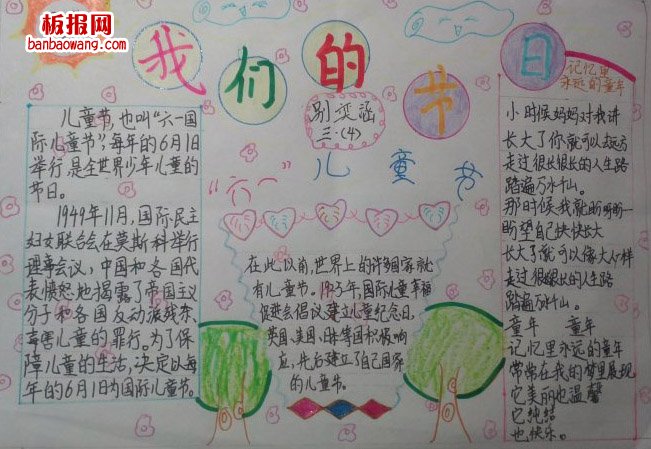 板报网
banbaowang.com
我们的节日
别奕涵
三·(4)
“六一”
儿童节
儿童节,也叫“六一国
际儿童节”,每年的6月1日
举行,是全世界少年儿童的
节日。
1949年11月,国际民主
妇女联合会在莫斯科举行
理事会议,中国和各国代
表愤怒地揭露了帝国主义
分子和各国反动派残杀、
毒害儿童的罪行。为了保
障儿童的生活,决定以每
年的6月1日为国际儿童节。
在此以前,世界上的许多国家就
有儿童节。1925年,国际儿童幸福
促进会倡议建立儿童纪念日,
英国、美国、日本等国积极响
应,先后建立了自己国家
的儿童节。
记忆里
永远的童年
小时候妈妈对我讲
长大了你就可以去远方
走过很长很长的人生路
踏遍万水千山。
那时候我就盼啊盼
盼望自己快快长大
长大了就可以像大人一样
走过很长很长的人生路
踏遍万水千山。
童年 童年
记忆里永远的童年
常常在我的梦里展现
它美丽也温馨
它纯洁
也快乐。